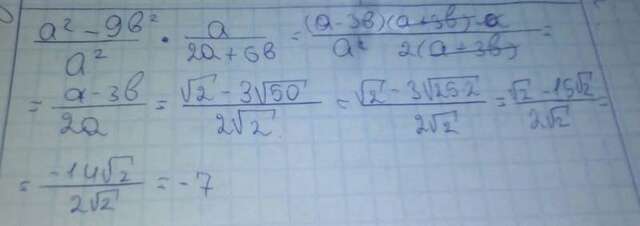 (a² - 9b²)/a² · a/(2a + 6b) = (a - 3b)(a + 3b) · a/(a² 2(a + 3b)) =
= (a - 3b)/(2a) = (√2 - 3√50)/(2√2) = (√2 - 3√(25·2))/(2√2) = (√2 - 15√2)/(2√2) =
= (-14√2)/(2√2) = -7